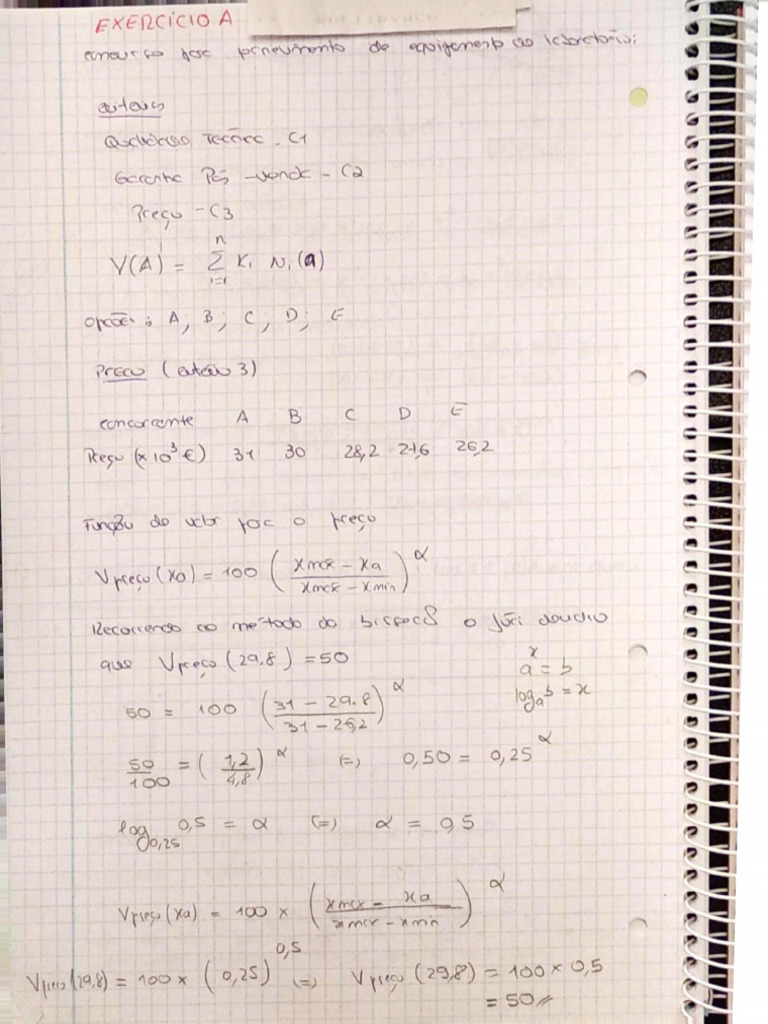 EXERCÍCIO A
concurso por de equipamento de laboratório;
Qualidade Tecnica - C1
Garantia Pós-venda - C2
Preço - C3
V(A) = \sum_{i=1}^{n} K_i N_i(a)
opções; A; B; C; D; E
Preço (critério 3)
concorrente A B C D E
Preço (×10³ €) 31 30 28,2 26,2
Função de valor por o preço
Vpreço(xa) = 100 ( (xmax - xa) / (xmax - xmin) )^α
Recorrendo ao método do o júri
que Vpreço(29.8) = 50
a^x = b
50 = 100 ( (31 - 29.8) / (31 - 26,2) )^α
log_a b = x
50/100 = ( 1,2 / 4,8 )^α (=) 0,50 = 0,25^α
log_{0,25} 0,5 = α (=) α = 0,5
Vpreço(xa) = 100 × ( (xmax - xa) / (xmax - xmin) )^α
Vpreço(29,8) = 100 × (0,25)^{0,5} (=) Vpreço(29,8) = 100 × 0,5
= 50 //